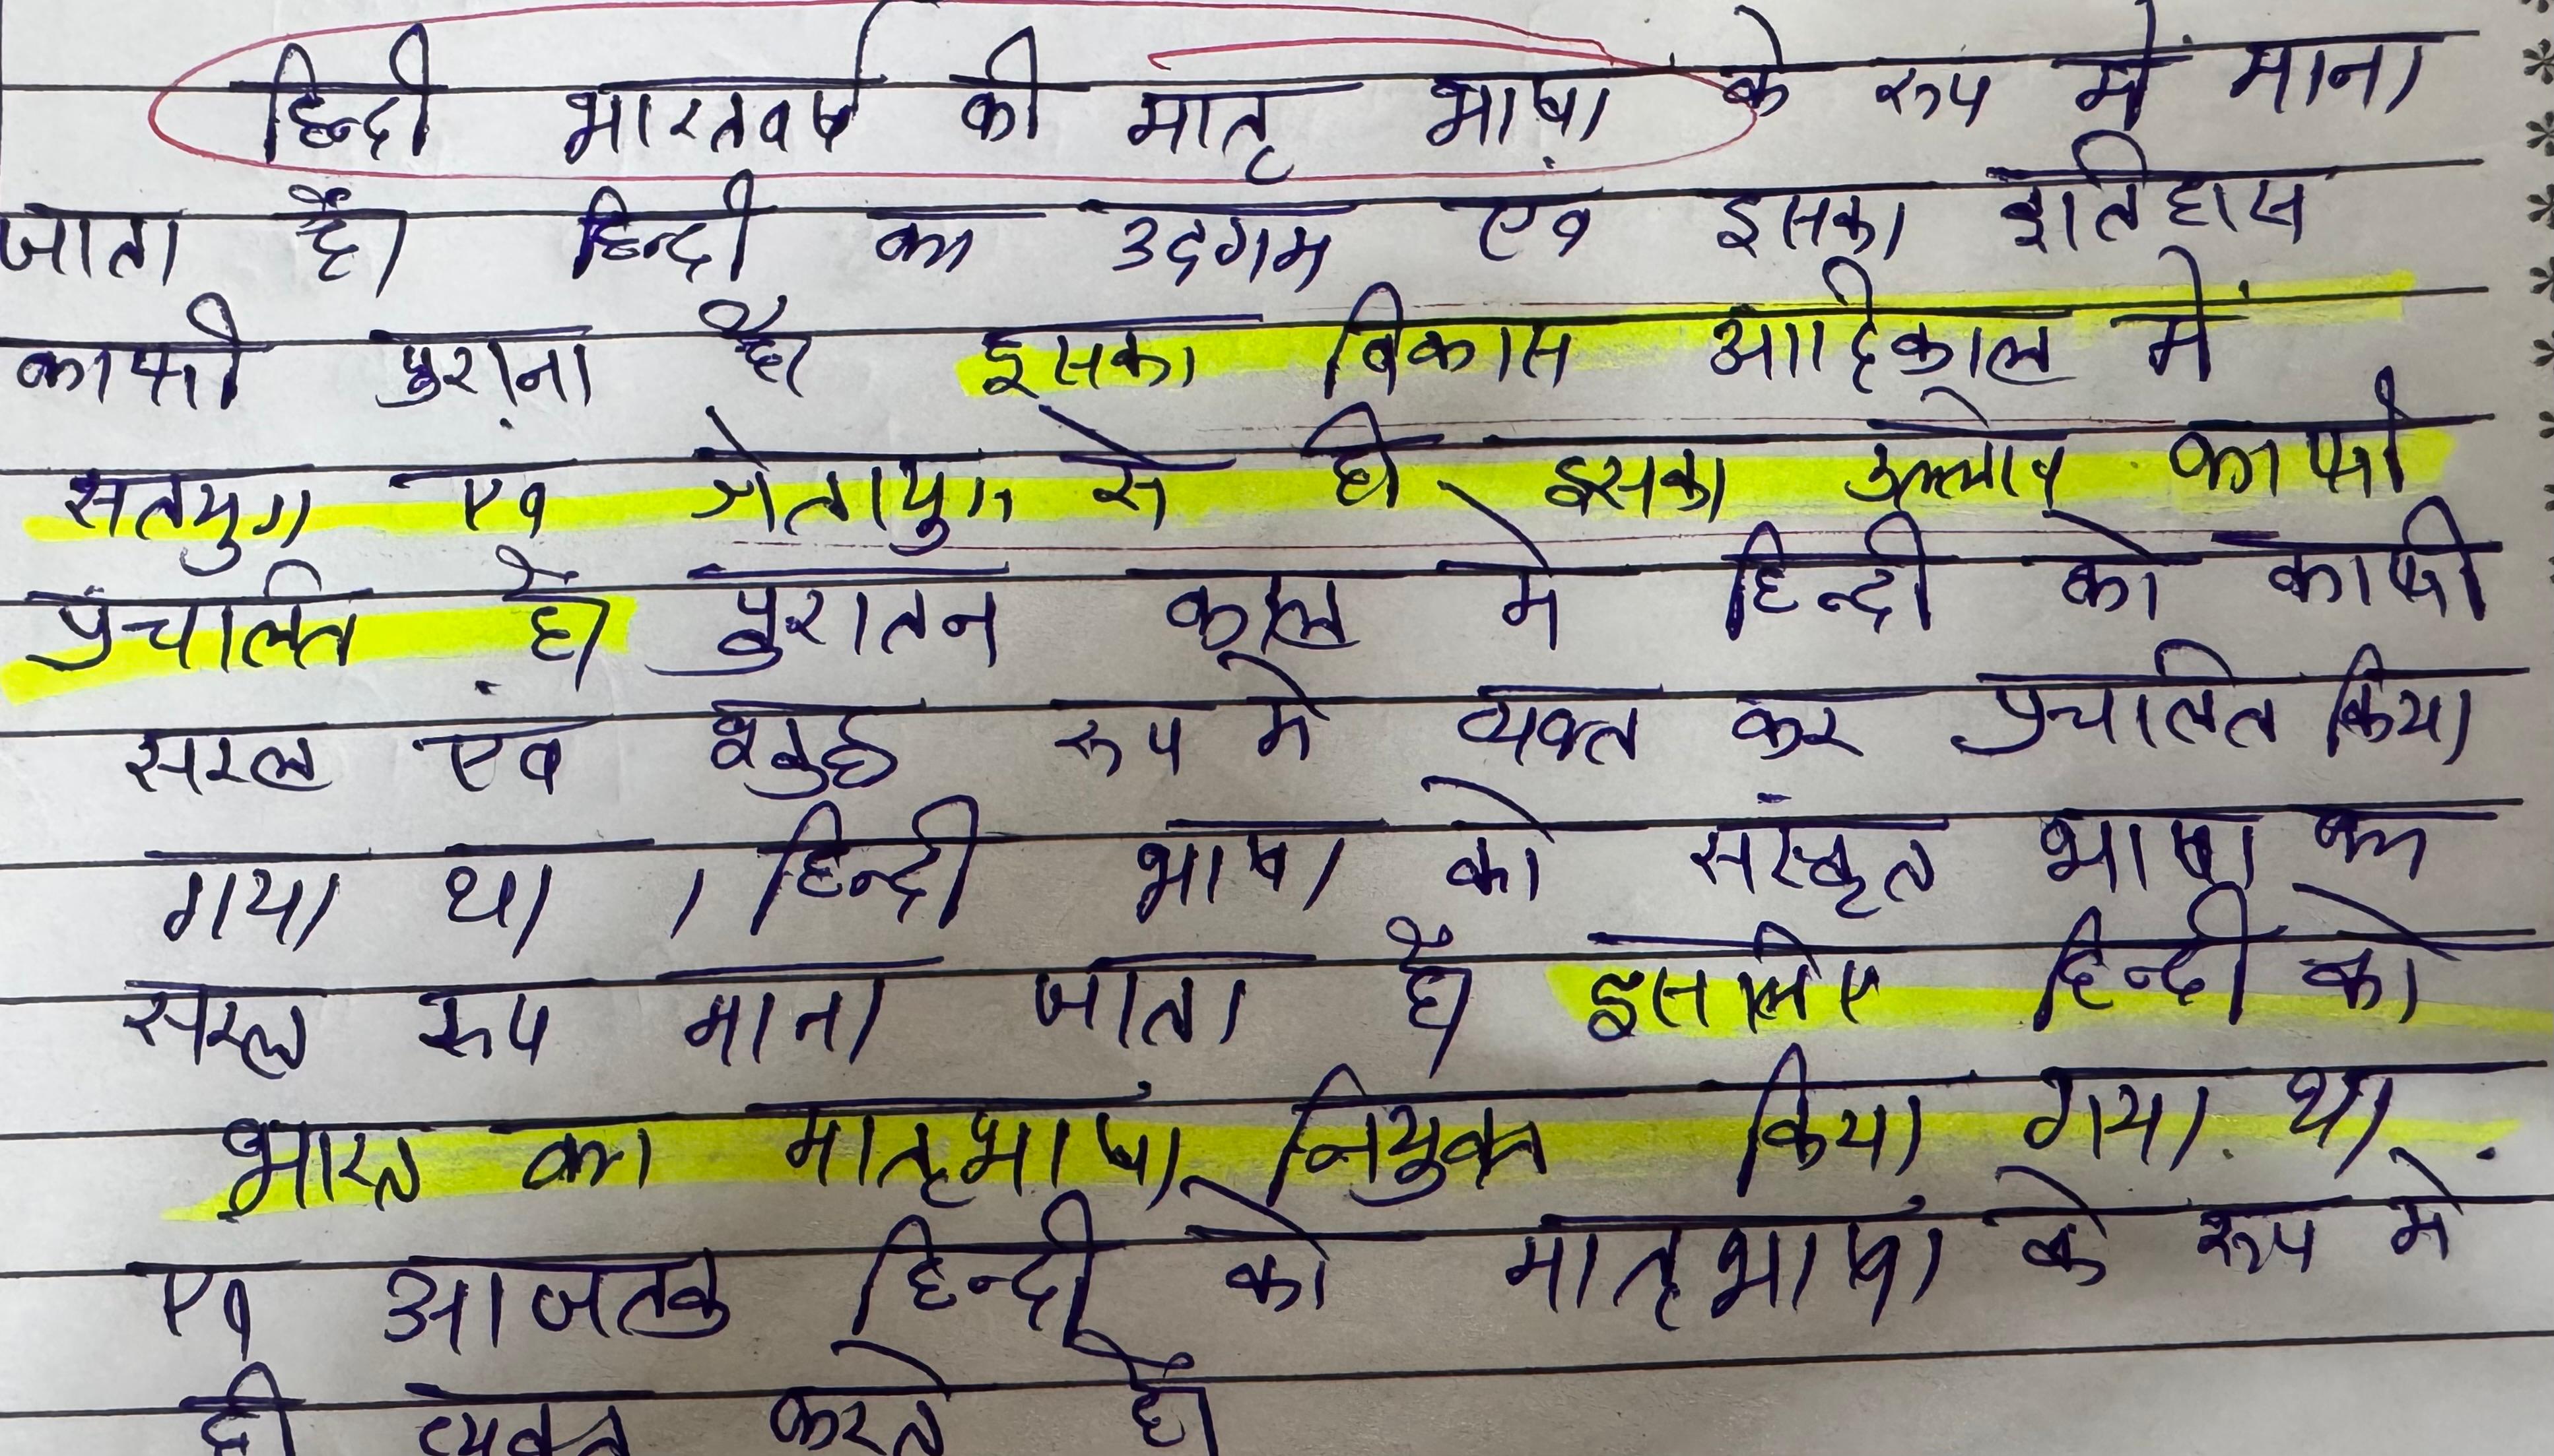 हिन्दी भारतवर्ष की मातृ भाषा के रूप में माना
जाता है। हिन्दी का उदगम एव इसका इतिहास
काफी पुराना है। इसका विकास आदिकाल में
सतयुग एव त्रेतायुग से ही इसका काफी
प्रचलित है। पुरातन काल मे हिन्दी को काफी
सरल एवं रूप मे व्यक्त कर प्रचलित किया
गया था । हिन्दी भाषा को संस्कृत भाषा का
सरल रूप माना जाता है इसलिए हिन्दी को
भारत का मातृभाषा नियुक्त किया गया था
एव आजतक हिन्दी को मातृभाषा के रूप मे
ही व्यक्त करते है।